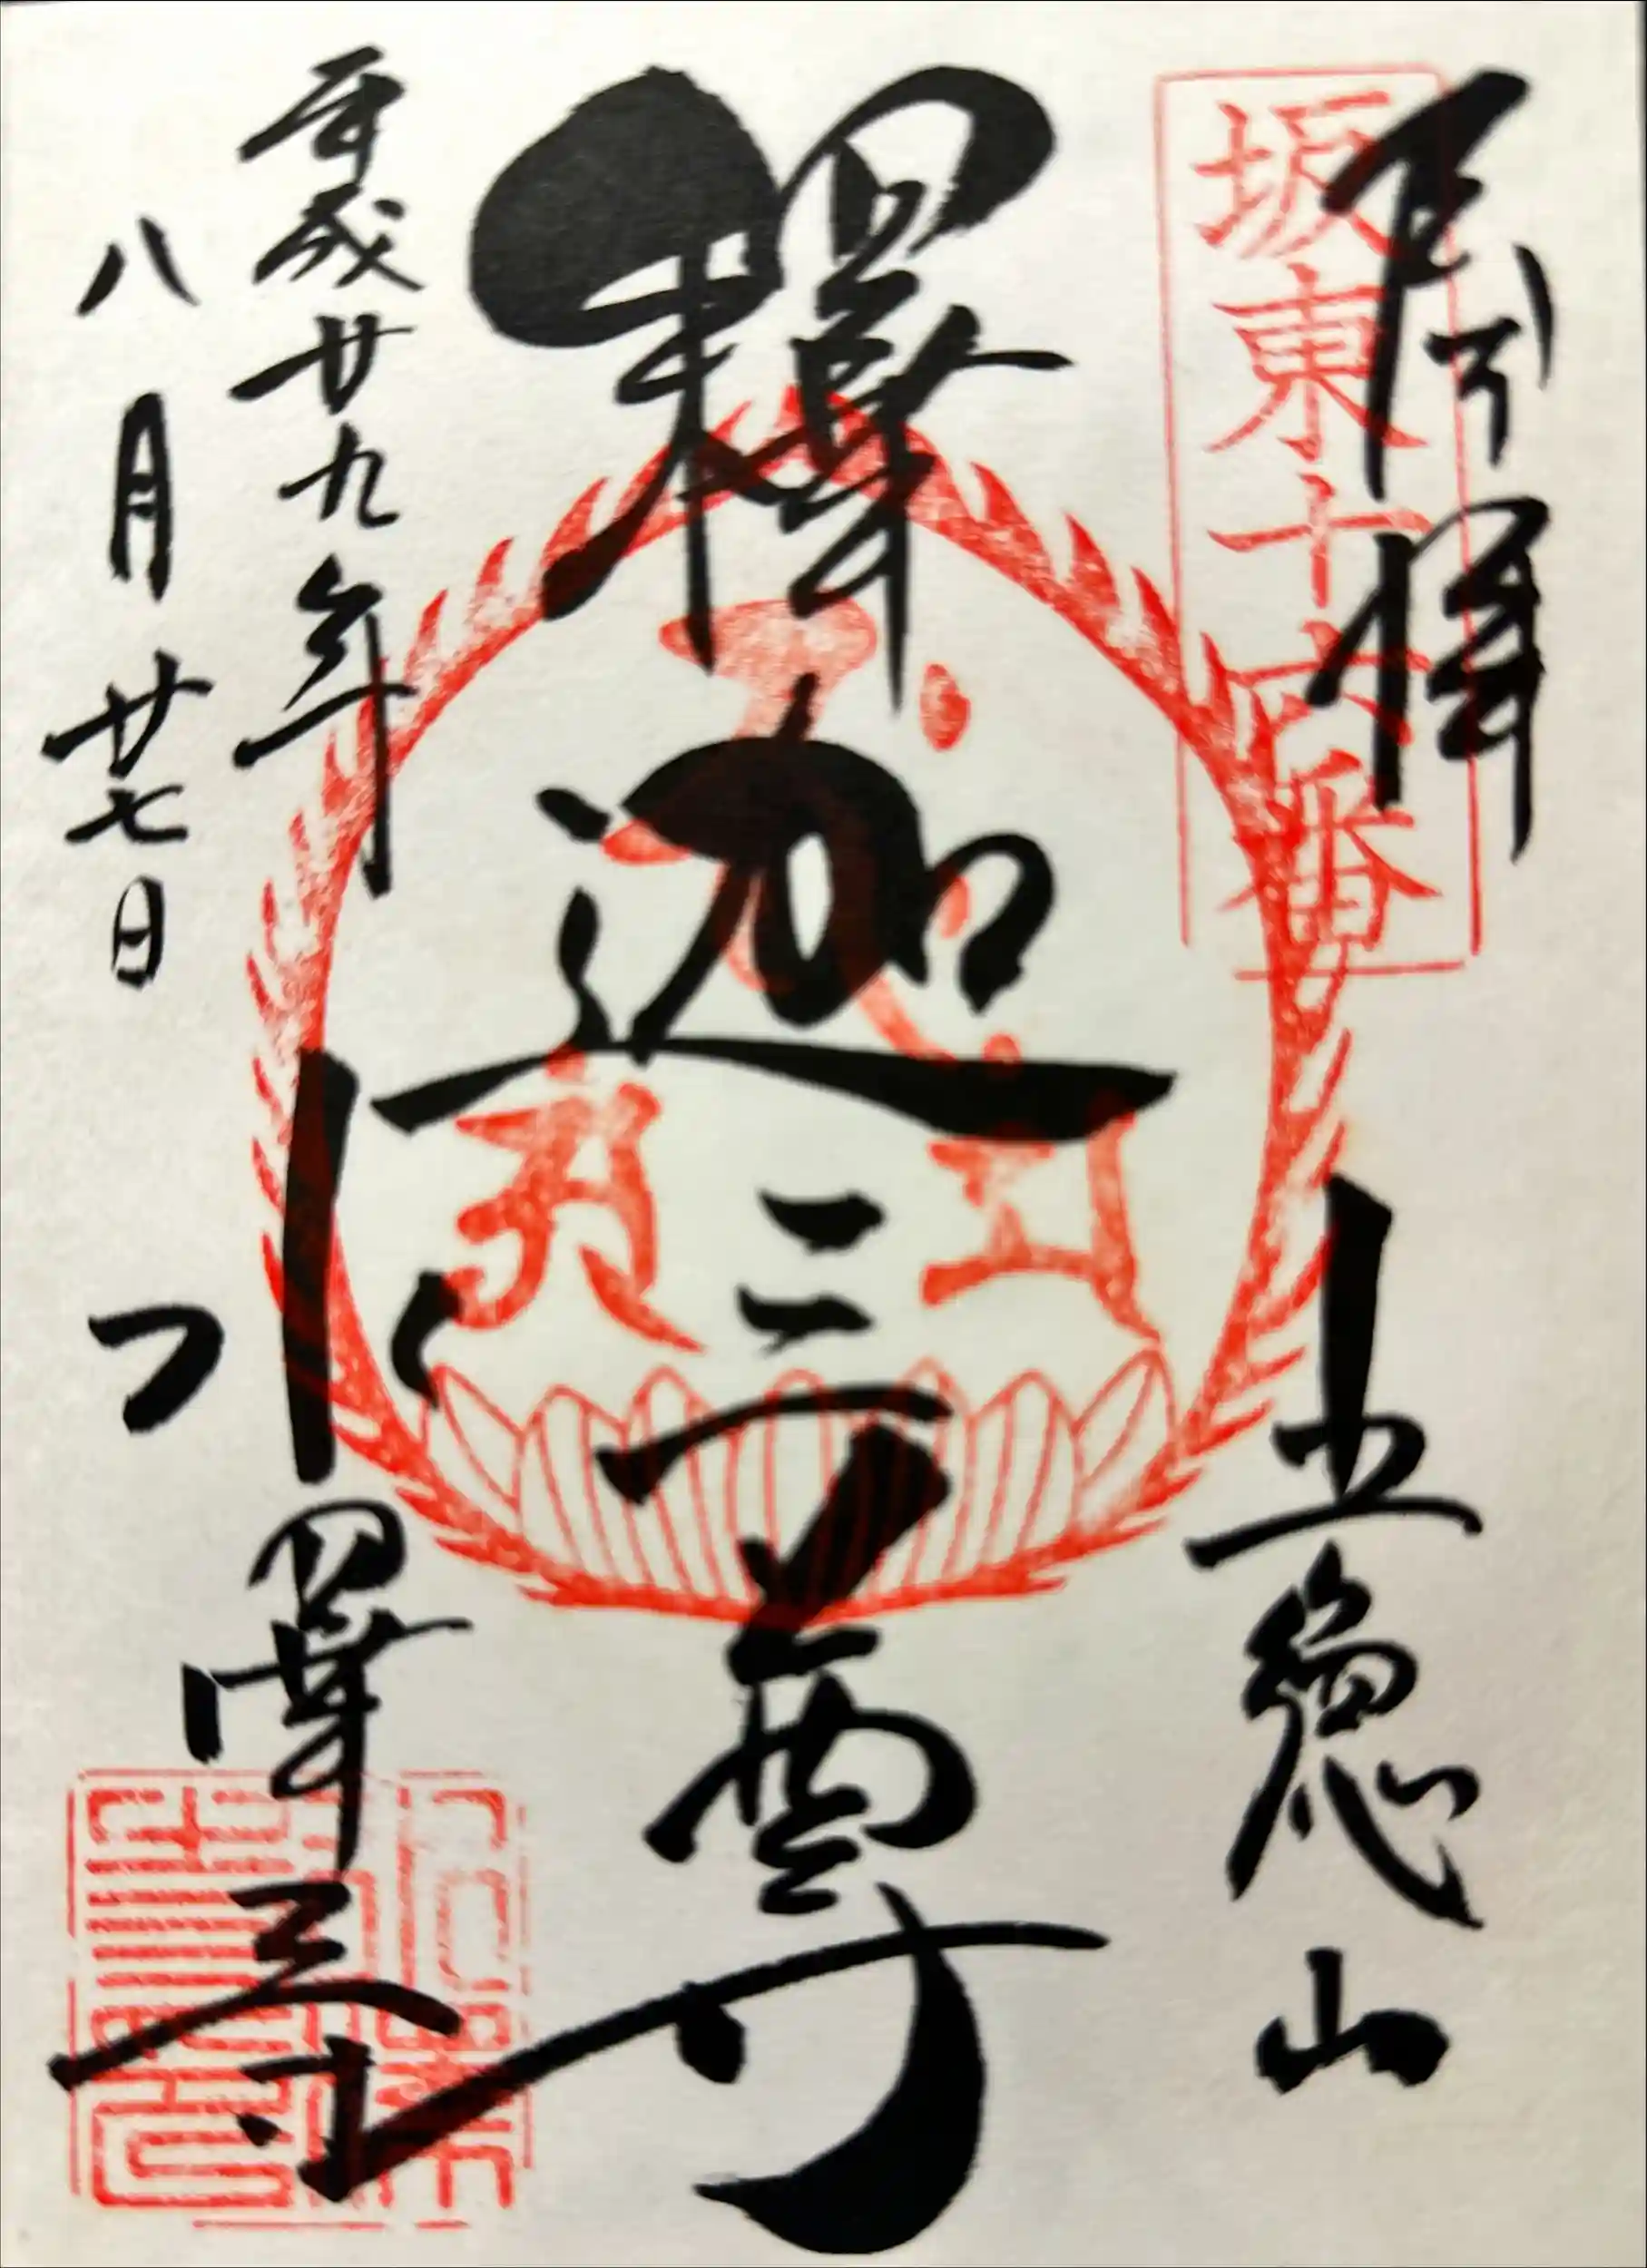 坂東十六番
奉拝
五徳山
釋迦三尊
平成廿九年
八月廿七日
水澤寺